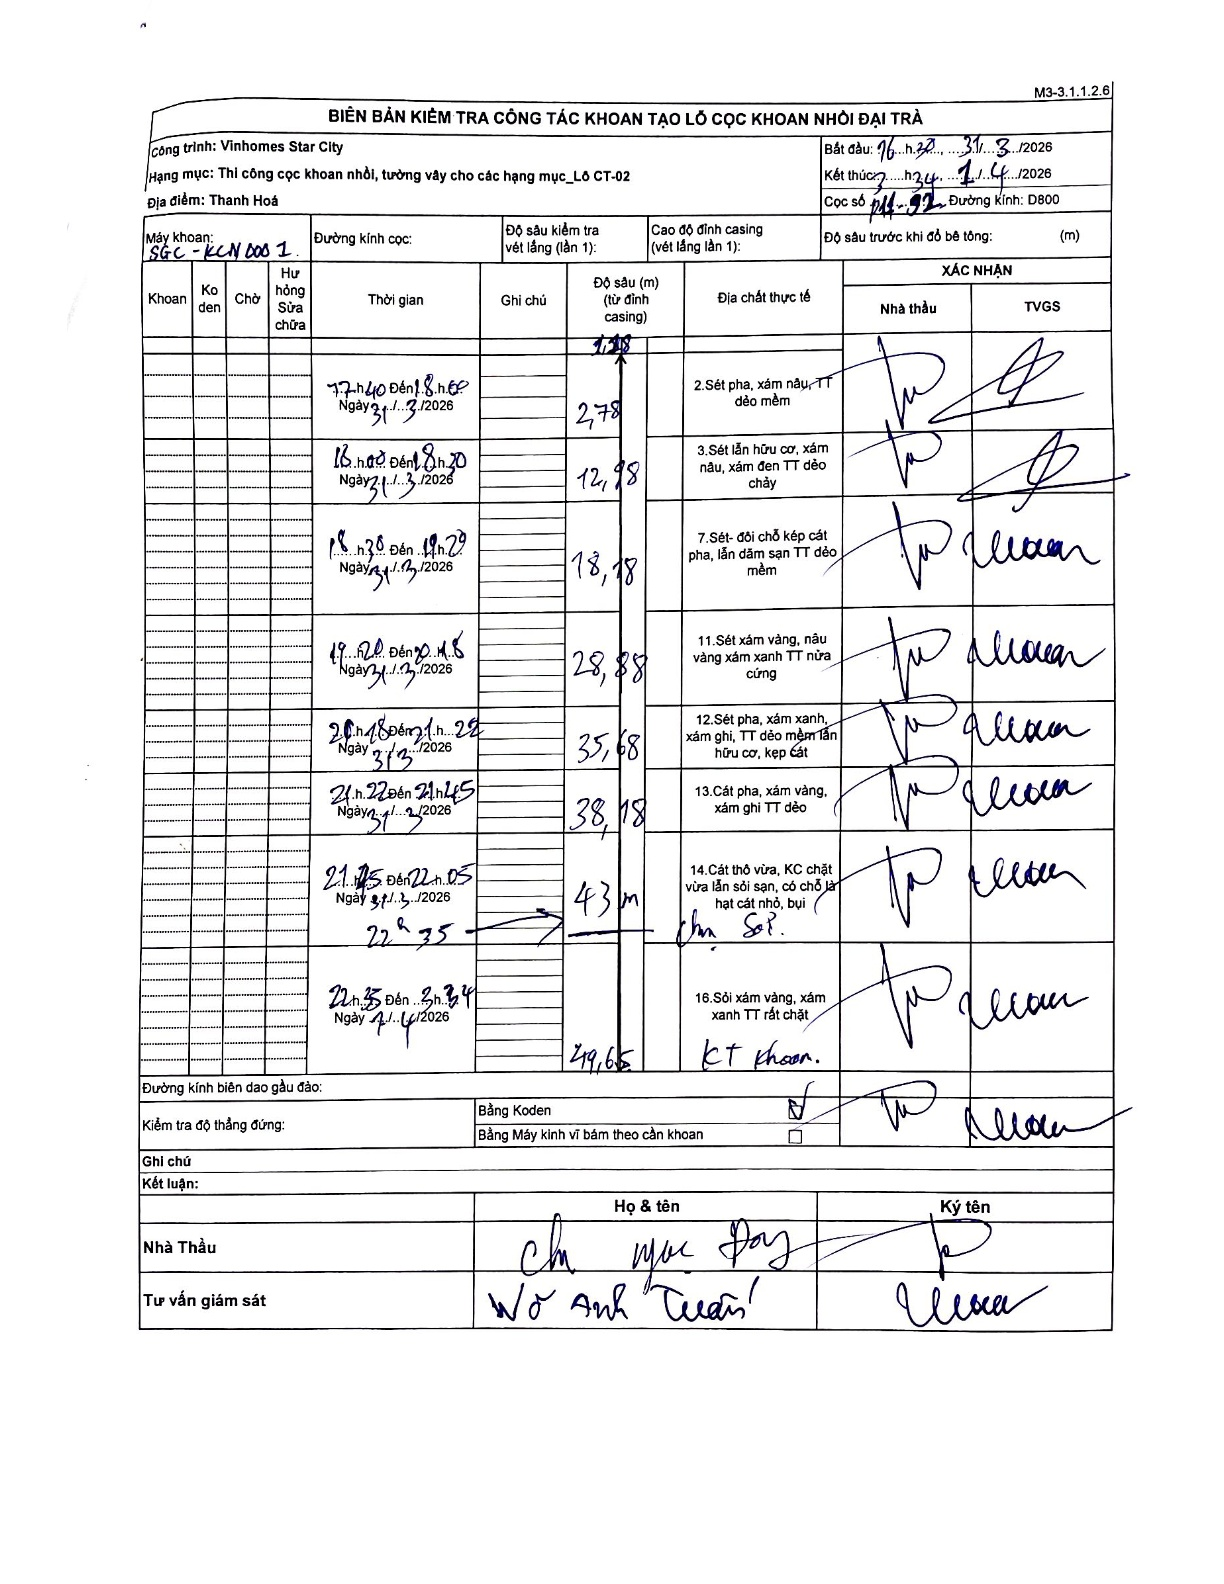 M3-3.1.1.2.6
BIÊN BẢN KIỂM TRA CÔNG TÁC KHOAN TẠO LỖ CỌC KHOAN NHỒI ĐẠI TRÀ
Công trình: Vinhomes Star City
Hạng mục: Thi công cọc khoan nhồi, tường vây cho các hạng mục_Lô CT-02
Địa điểm: Thanh Hoá
Bắt đầu: 16...h.30..., ....31/...3.../2026
Kết thúc: 3....h34, ....1../..4.../2026
Cọc số Đường kính: D800
Máy khoan:
SGC - KCN 000 1.
Đường kính cọc:
Độ sâu kiểm tra vét lắng (lần 1):
Cao độ đỉnh casing (vét lắng lần 1):
Độ sâu trước khi đổ bê tông: (m)
Khoan
Ko den
Chờ
Hư hỏng Sửa chữa
Thời gian
Ghi chú
Độ sâu (m) (từ đỉnh casing)
Địa chất thực tế
XÁC NHẬN
Nhà thầu
TVGS
17.h40 Đến 18.h.00
Ngày 31./...3./2026
2,78
2.Sét pha, xám nâu, TT
dẻo mềm
18.h.00 Đến 18.h30
Ngày 31./...3./2026
12,98
3.Sét lẫn hữu cơ, xám
nâu, xám đen TT dẻo
chảy
18...h30 Đến ..19.h.20
Ngày 31./..3../2026
18,18
7.Sét- đôi chỗ kép cát
pha, lẫn dăm sạn TT dẻo
mềm
19...h20. Đến 20..h18
Ngày 31./..3../2026
28,88
11.Sét xám vàng, nâu
vàng xám xanh TT nửa
cứng
20.h18 Đến 21.h...22
Ngày 31/3.../2026
35,68
12.Sét pha, xám xanh,
xám ghi, TT dẻo mềm lẫn
hữu cơ, kẹp cát
21.h.22 Đến 21.h45
Ngày 31./...3/2026
38,18
13.Cát pha, xám vàng,
xám ghi TT dẻo
21..h45 Đến 22.h.05
Ngày 31./..3../2026
22h 35
43 m
14.Cát thô vừa, KC chặt
vừa lẫn sỏi sạn, có chỗ là
hạt cát nhỏ, bụi
22.h.35 Đến ..3h..34
Ngày .1./..4./2026
49,65
16.Sỏi xám vàng, xám
xanh TT rất chặt
KT khoan.
Đường kính biên dao gầu đào:
Kiểm tra độ thẳng đứng:
Bằng Koden
Bằng Máy kinh vĩ bám theo cần khoan
Ghi chú
Kết luận:
Họ & tên
Ký tên
Nhà Thầu
Tư vấn giám sát
Võ Anh Tuấn